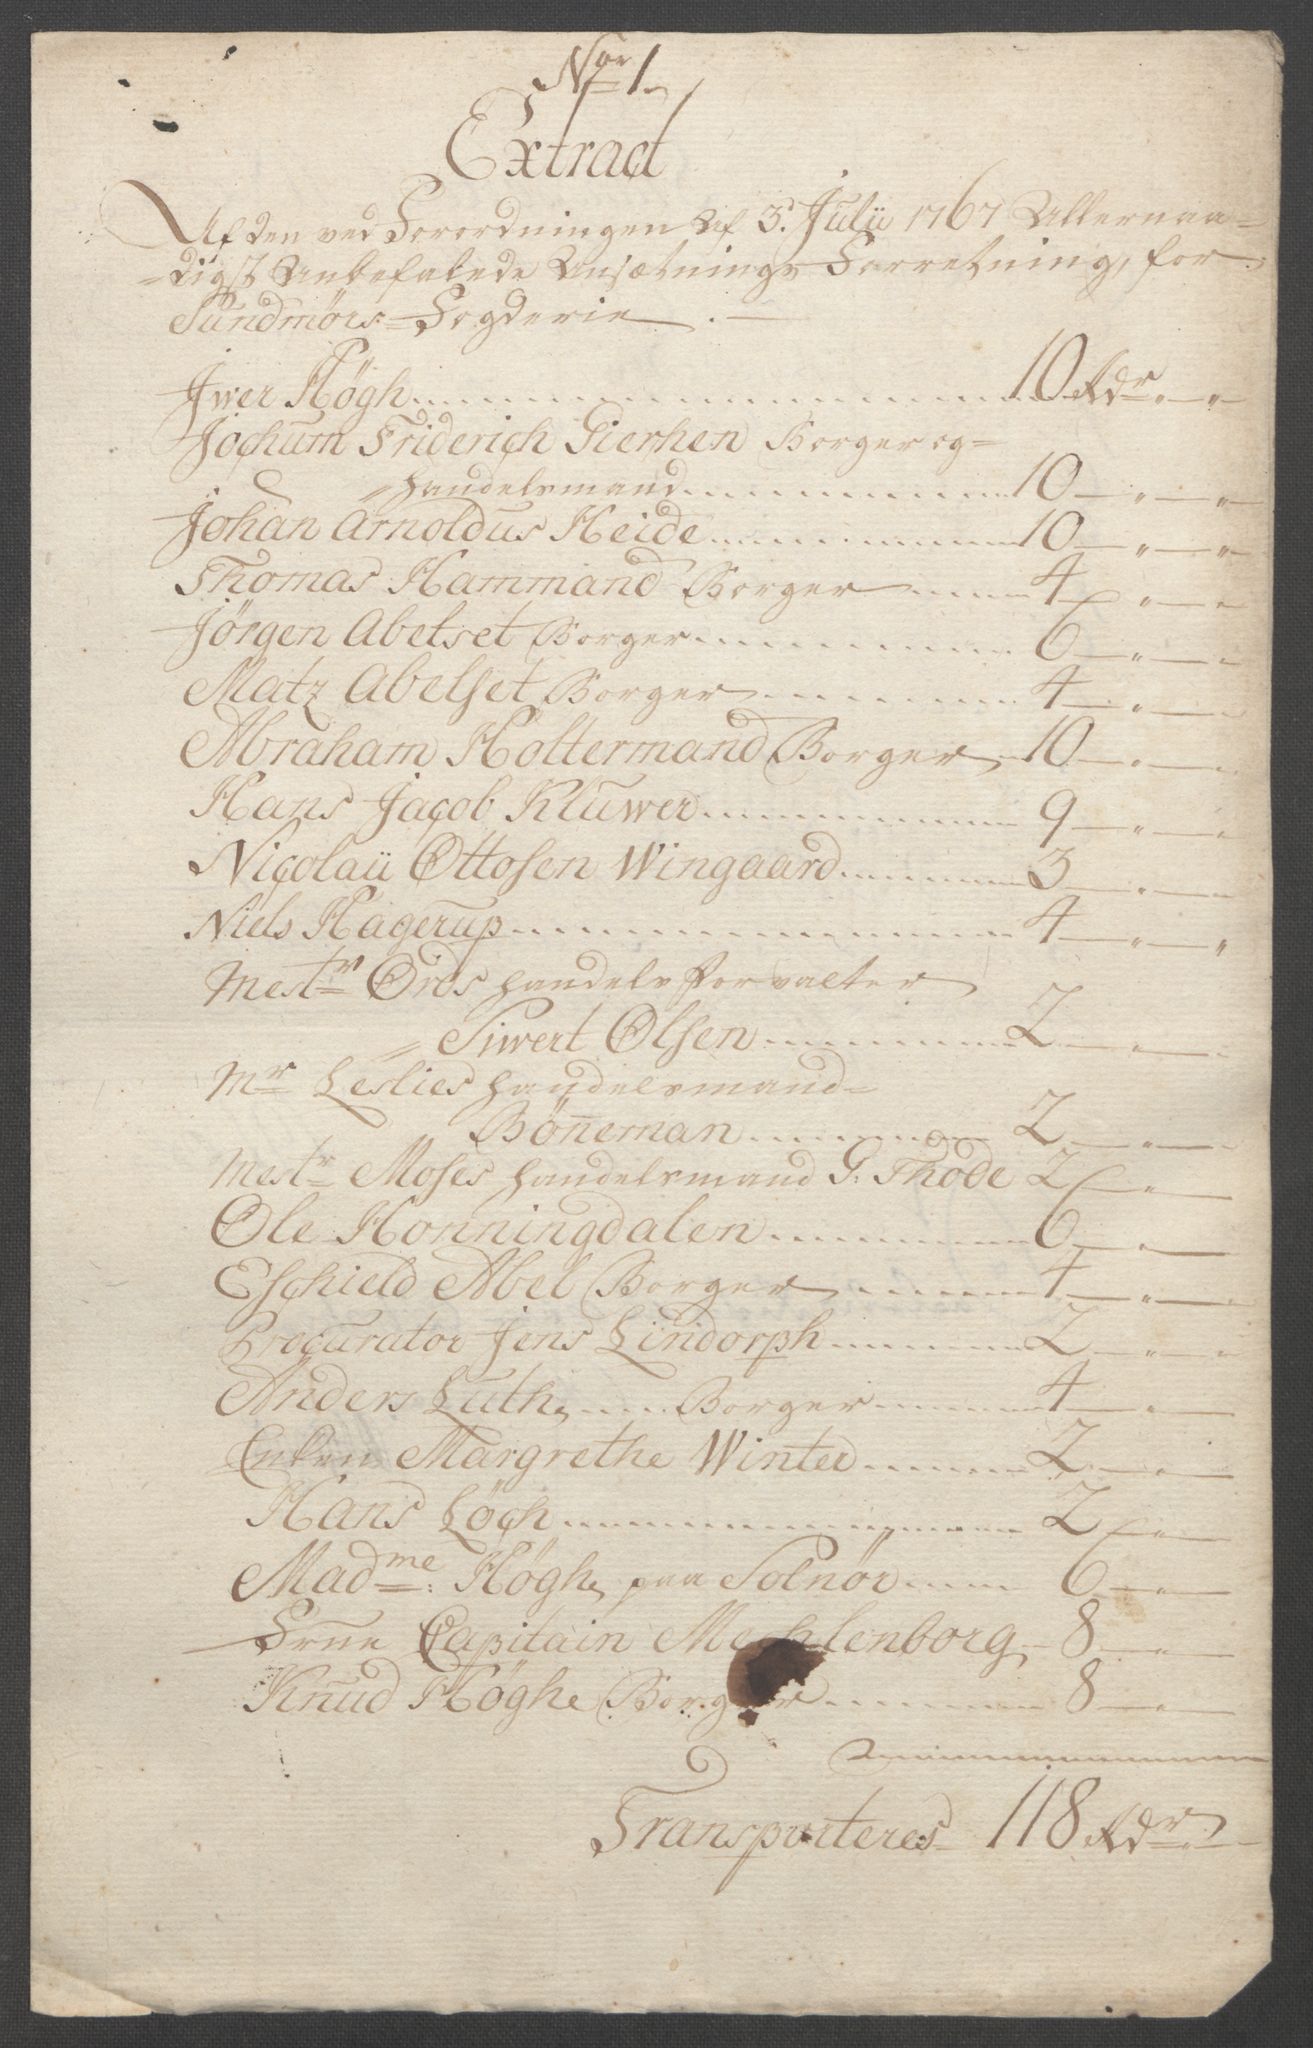 Nor 1.
Extract
Af den ved Forordningen af 3. Julii 1767 Allernaa-
-digst Anbefalede Ansætnings Forretning, for
Sundmørs Fogderie.
Iwer Høgh 10 Rdr " "
Jochum Friderich Gierhen Borger og
handelsmand 10 " "
Johan Arnoldus Heide 10 " "
Thomas Hammand Borger 4 " "
Jørgen Abelset Borger 6 " "
Matz Abelset Borger 4 " "
Abraham Holtermand Borger 10 " "
Hans Jacob Kluwer 9 " "
Nicolaii Ottosen Wingaard 3 " "
Niels Hagerup 4 " "
Mestr Ords handels forvalter
Siwert Olsen 2 " "
Mr Leslies handelsmand
Bönneman 2 " "
Mestr Moses handelsmand G: Thode 2 "
Ole Honningdalen 6 "
Eschield Abel Borger 4 " "
Procurator Jens Lindorph 2 " "
Anders Luth, Borger 4 "
Enken Margrethe Winter 2 "
Hans Löch 2 "
Madme: Høgh, paa Solnør 6 "
Frue Capitain Mechlenborg 8 "
Knud Høghe Borger 8 "
Transporteres 118 Rdr